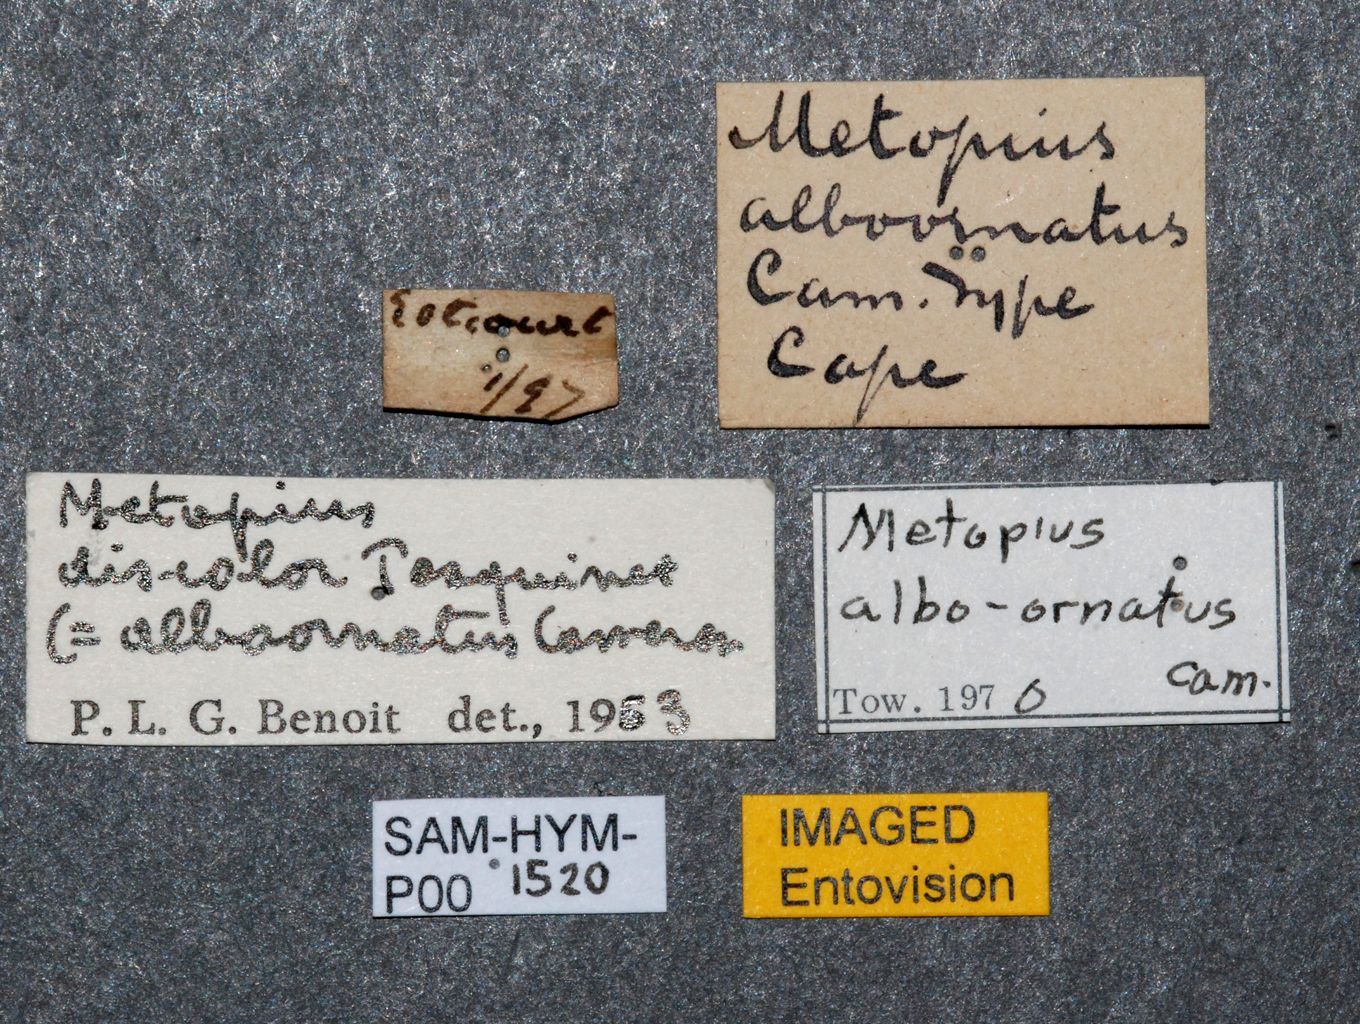 Estcourt
1/97
Metopius
alboornatus
Cam. Type
Cape
Metopius
discolor Tosquinet
(= alboornatus Cameron
P. L. G. Benoit det., 1953
Metopius
albo-ornatus
Cam.
Tow. 1970
SAM-HYM-
P00 1520
IMAGED
Entovision